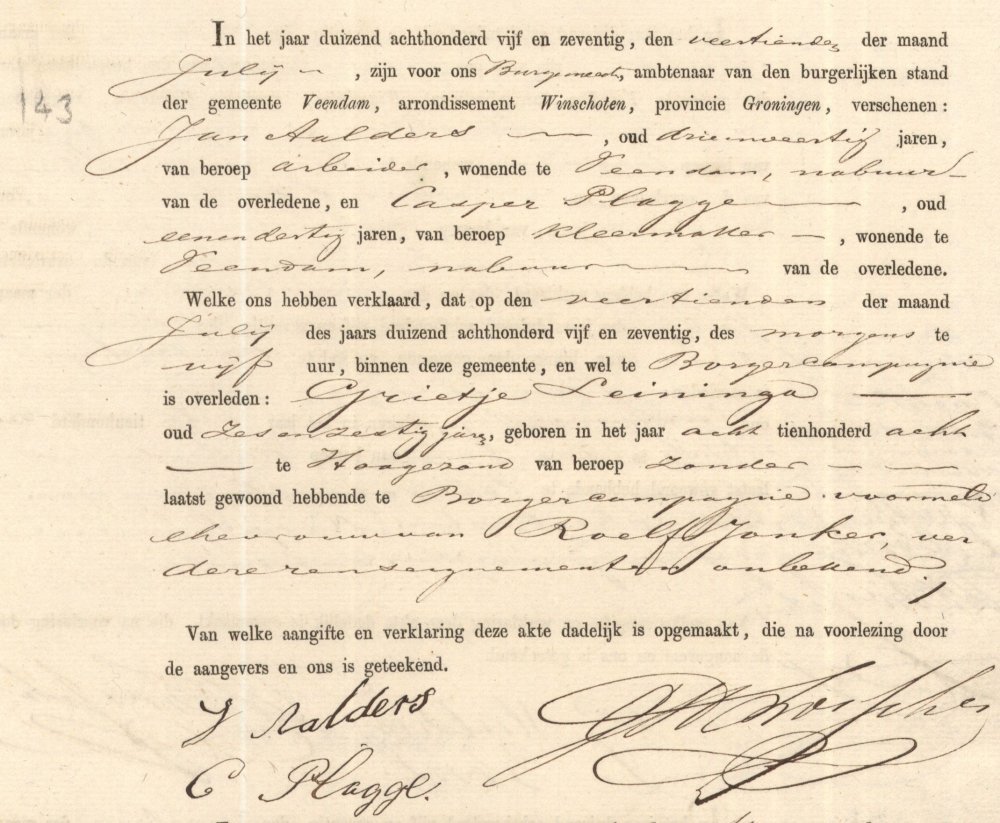 143
In het jaar duizend achthonderd vijf en zeventig, den veertienden der maand
July, zijn voor ons Burgemeester, ambtenaar van den burgerlijken stand
der gemeente Veendam, arrondissement Winschoten, provincie Groningen, verschenen:
Jan Aalders, oud drieenveertig jaren,
van beroep arbeider, wonende te Veendam, nabuur
van de overledene, en Casper Plagge, oud
eenendertig jaren, van beroep kleermaker, wonende te
Veendam, nabuur van de overledene.
Welke ons hebben verklaard, dat op den veertienden der maand
July des jaars duizend achthonderd vijf en zeventig, des morgens te
vijf uur, binnen deze gemeente, en wel te Borgercompagnie
is overleden: Grietje Leininga
oud zesenzestig jaren, geboren in het jaar acht tienhonderd acht
te Hoogezand van beroep zonder
laatst gewoond hebbende te Borgercompagnie voormeld
ehevrouw van Roelf Jonker, ver
dere renseignementen onbekend.
Van welke aangifte en verklaring deze akte dadelijk is opgemaakt, die na voorlezing door
de aangevers en ons is geteekend.
J Aalders
C Plagge.